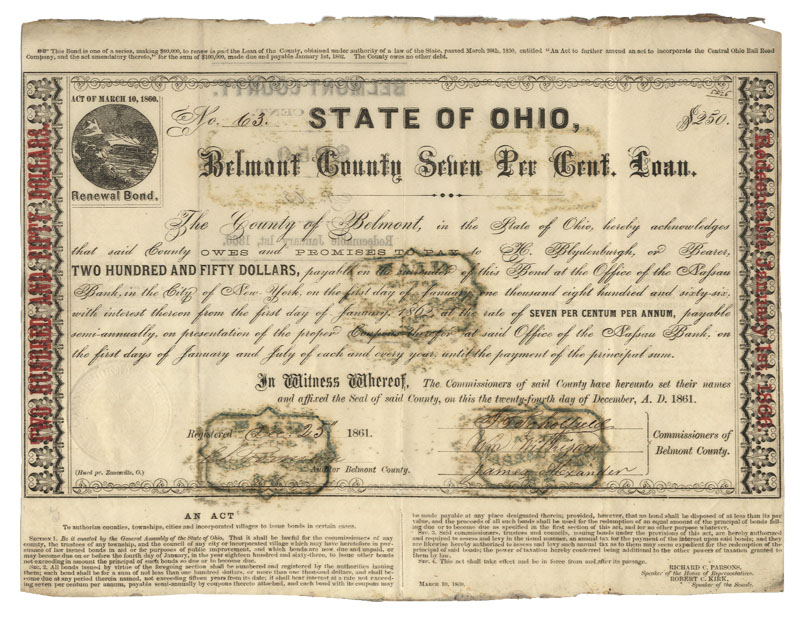 This Bond is one of a series, making $60,000, to renew in part the Loan of the County, obtained under authority of a law of the State, passed March 20th, 1850, entitled "An Act to further amend an act to incorporate the Central Ohio Rail Road
Company, and the act amendatory thereto," for the sum of $100,000, made due and payable January 1st, 1862. The County owes no other debt.
ACT OF MARCH 10, 1860.
Renewal Bond.
No. 63.
STATE OF OHIO,
$250.
Belmont County Seven Per Cent. Loan.
The County of Belmont, in the State of Ohio, hereby acknowledges
that said County OWES and PROMISES TO PAY to H. Blydenburgh, or Bearer,
TWO HUNDRED AND FIFTY DOLLARS, payable on the surrender of this Bond at the Office of the Nassau
Bank, in the City of New York, on the first day of January, one thousand eight hundred and sixty-six,
with interest thereon from the first day of January, 1862, at the rate of SEVEN PER CENTUM PER ANNUM, payable
semi-annually, on presentation of the proper Coupons therefor at said Office of the Nassau Bank, on
the first days of January and July of each and every year, until the payment of the principal sum.
In Witness Whereof, The Commissioners of said County have hereunto set their names
and affixed the Seal of said County, on this the twenty-fourth day of December, A. D. 1861.
Registered Dec. 25 1861.
Auditor Belmont County.
James Alexander
Commissioners of
Belmont County.
(Hurd pr. Zanesville, O.)
TWO HUNDRED AND FIFTY DOLLARS.
Redeemable January 1st, 1866.
BELMONT COUNTY.
Redeemable January 1st, 1866.
AN ACT
To authorize counties, townships, cities and incorporated villages to issue bonds in certain cases.
SECTION 1. Be it enacted by the General Assembly of the State of Ohio, That it shall be lawful for the commissioners of any
county, the trustees of any township, and the council of any city or incorporated village which may have heretofore in pur-
suance of law issued bonds in aid or for purposes of public improvement, and which bonds are now due and unpaid, or
may become due on or before the fourth day of January, in the year eighteen hundred and sixty-three, to issue other bonds
not exceeding in amount the principal of such bonds so due or to become due.
SEC. 2. All bonds issued by virtue of the foregoing section shall be numbered and registered by the authorities issuing
them; each bond shall be for a sum of not less than one hundred dollars, or more than one thousand dollars, and shall be-
come due at any period therein named, not exceeding fifteen years from its date; it shall bear interest at a rate not exceed-
ing seven per centum per annum, payable semi-annually by coupons thereto attached, and each bond with its coupons may
be made payable at any place designated therein; provided, however, that no bond shall be disposed of at less than its par
value, and the proceeds of all such bonds shall be used for the redemption of an equal amount of the principal of bonds fall-
ing due or to become due as specified in the first section of this act, and for no other purpose whatever.
SEC. 3. Said commissioners, trustees and councils, issuing bonds under the provisions of this act, are hereby authorized
and required to assess and levy in the usual manner, an annual tax for the payment of the interest upon said bonds; and they
are likewise hereby authorized to assess and levy such annual tax as to them may seem expedient for the redemption of the
principal of said bonds; the power of taxation hereby conferred being additional to the other powers of taxation granted to
them by law.
SEC. 4. This act shall take effect and be in force from and after its passage.
RICHARD C. PARSONS,
Speaker of the House of Representatives.
ROBERT C. KIRK,
Speaker of the Senate.
MARCH 10, 1860.